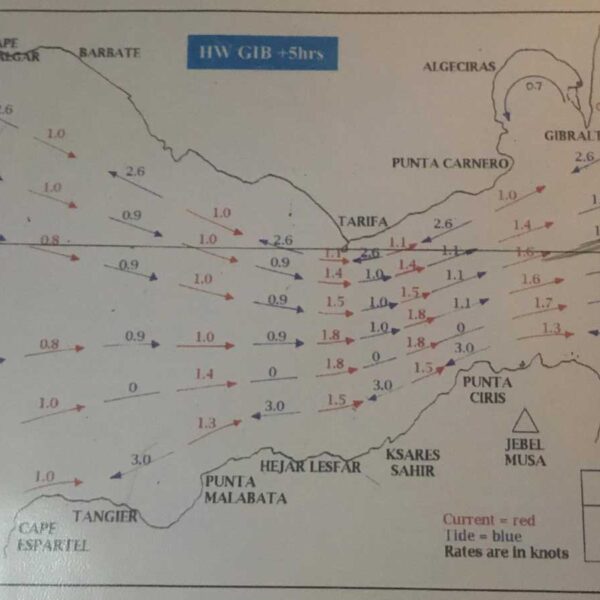 HW GIB +5hrs
BARBATE
ALGECIRAS
0.7
GIBRALT
PUNTA CARNERO
TARIFA
2.6
1.0
2.6
2.6
1.0
1.0
0.9
1.0
2.6
1.4
0.8
1.0
2.6
1.1
2.6
1.1
1.1
1.6
0.9
0.9
1.4
1.0
1.4
1.1
1.6
1.0
0.9
1.5
1.0
1.5
1.1
1.7
1.8
1.3
0.8
0.9
1.0
0.9
1.8
1.0
1.8
0
1.4
0
1.8
0
1.5
3.0
0
1.0
3.0
1.5
3.0
1.3
3.0
1.0
PUNTA
CIRIS
JEBEL
MUSA
KSARES
SAHIR
HEJAR LESFAR
PUNTA
MALABATA
TANGIER
CAPE
ESPARTEL
Current = red
Tide = blue
Rates are in knots